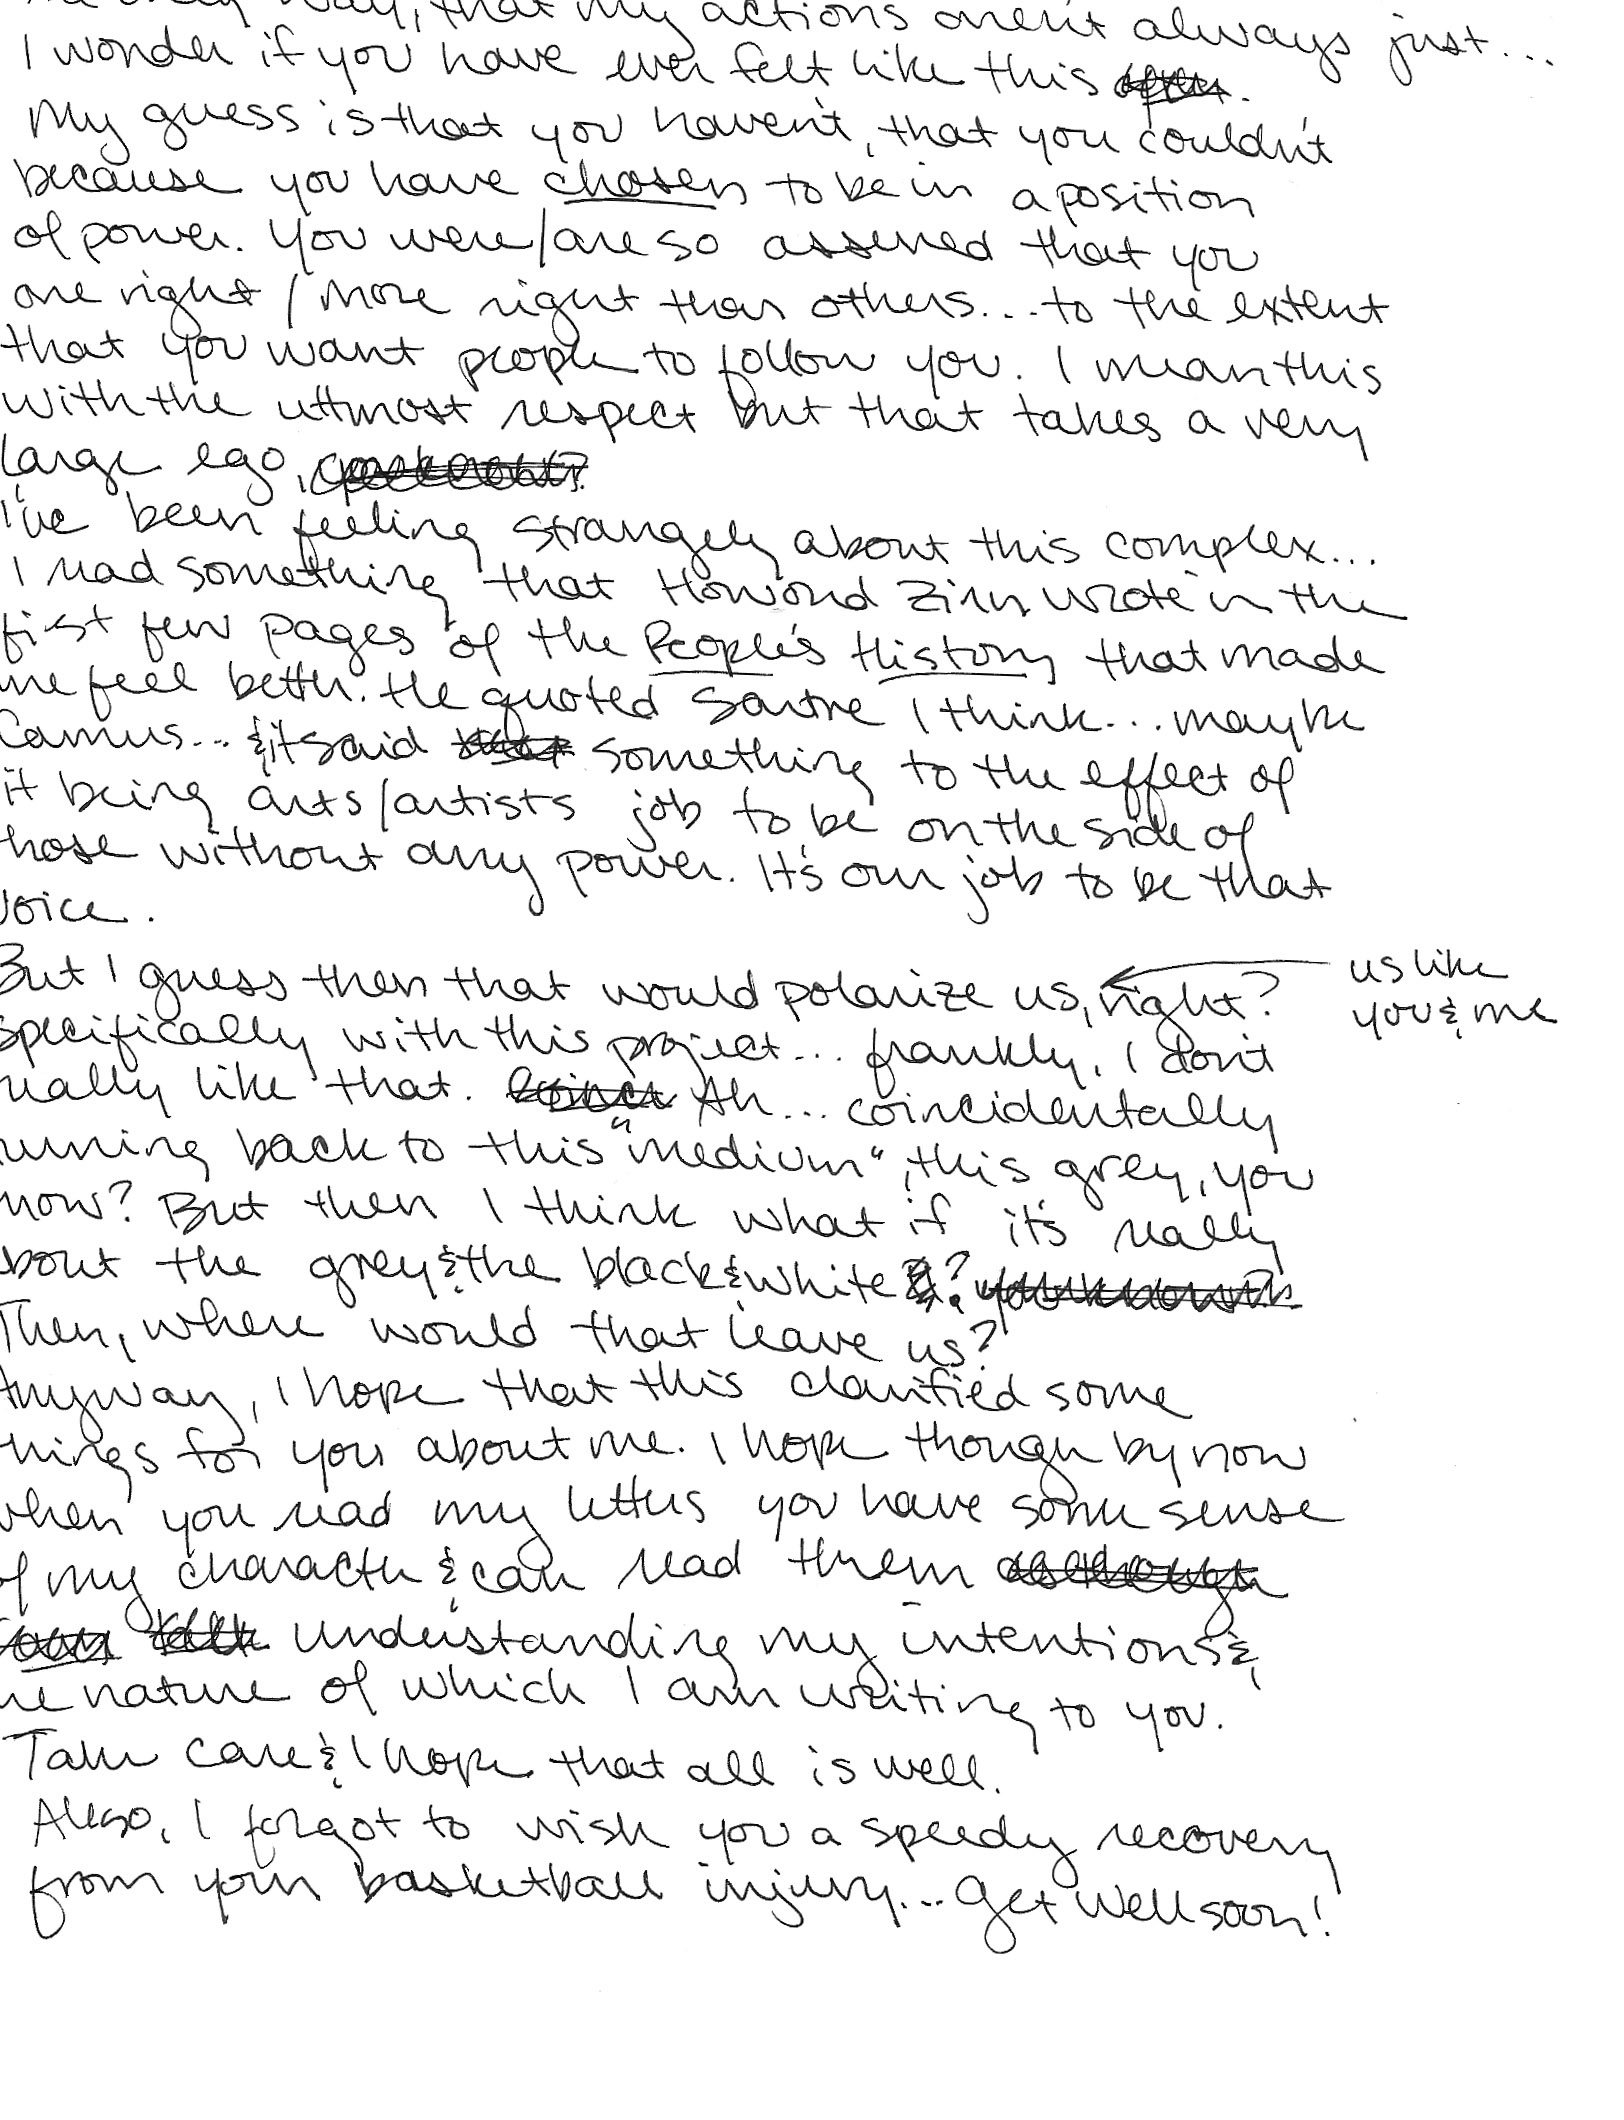 way, that my actions aren't always just...
I wonder if you have ever felt like this
My guess is that you haven't, that you couldn't
because you have chosen to be in a position
of power. You were/are so assured that you
are right / more right than others... to the extent
that you want people to follow you. I mean this
with the uttmost respect but that takes a very
large ego,
I've been feeling strangely about this complex...
I read something that Howard Zinn wrote in the
first few pages of the People's History that made
me feel better. He quoted Sartre I think... maybe
Camus... & it said something to the effect of
it being arts/artists job to be on the side of
those without any power. It's our job to be that
voice.
But I guess then that would polarize us, right?
us like
you & me
specifically with this project... frankly, I don't
really like that. Ah... coincidentally
back to this "medium", this grey, you
know? But then I think what if it's really
about the grey & the black & white?
Then, where would that leave us?
Anyway, I hope that this clarified some
things for you about me. I hope though by now
when you read my letters you have some sense
of my character & can read them
understanding my intentions &
the nature of which I am writing to you.
Take care & I hope that all is well.
Also, I forgot to wish you a speedy recovery
from your basketball injury... get well soon!